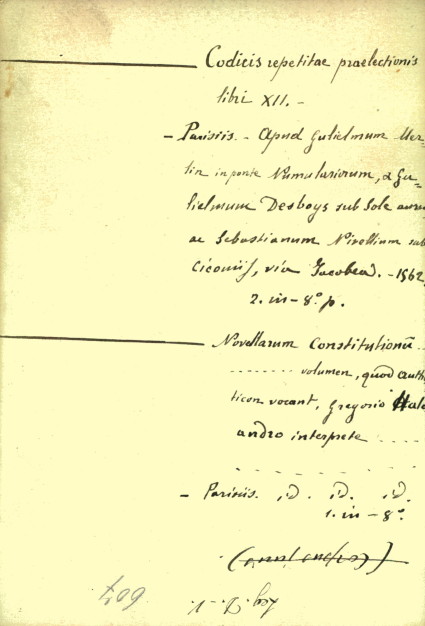 Codicis repetitae praelectionis
libri XII. -
- Parisiis. - Apud Gulielmum Mer-
lin in ponte Numulariorum, & Gu-
lielmum Desboys sub Sole aureo
ac Sebastianum Nivellium sub
Ciconiis, via Jacobea. - 1562
2. in - 8º p.
Novellarum Constitutionū ..
....... volumen, quod auth
ticon vocant, Gregorio Hale
andro interprete ....
- Parisiis. id. id. id.
1. in - 8º.
607